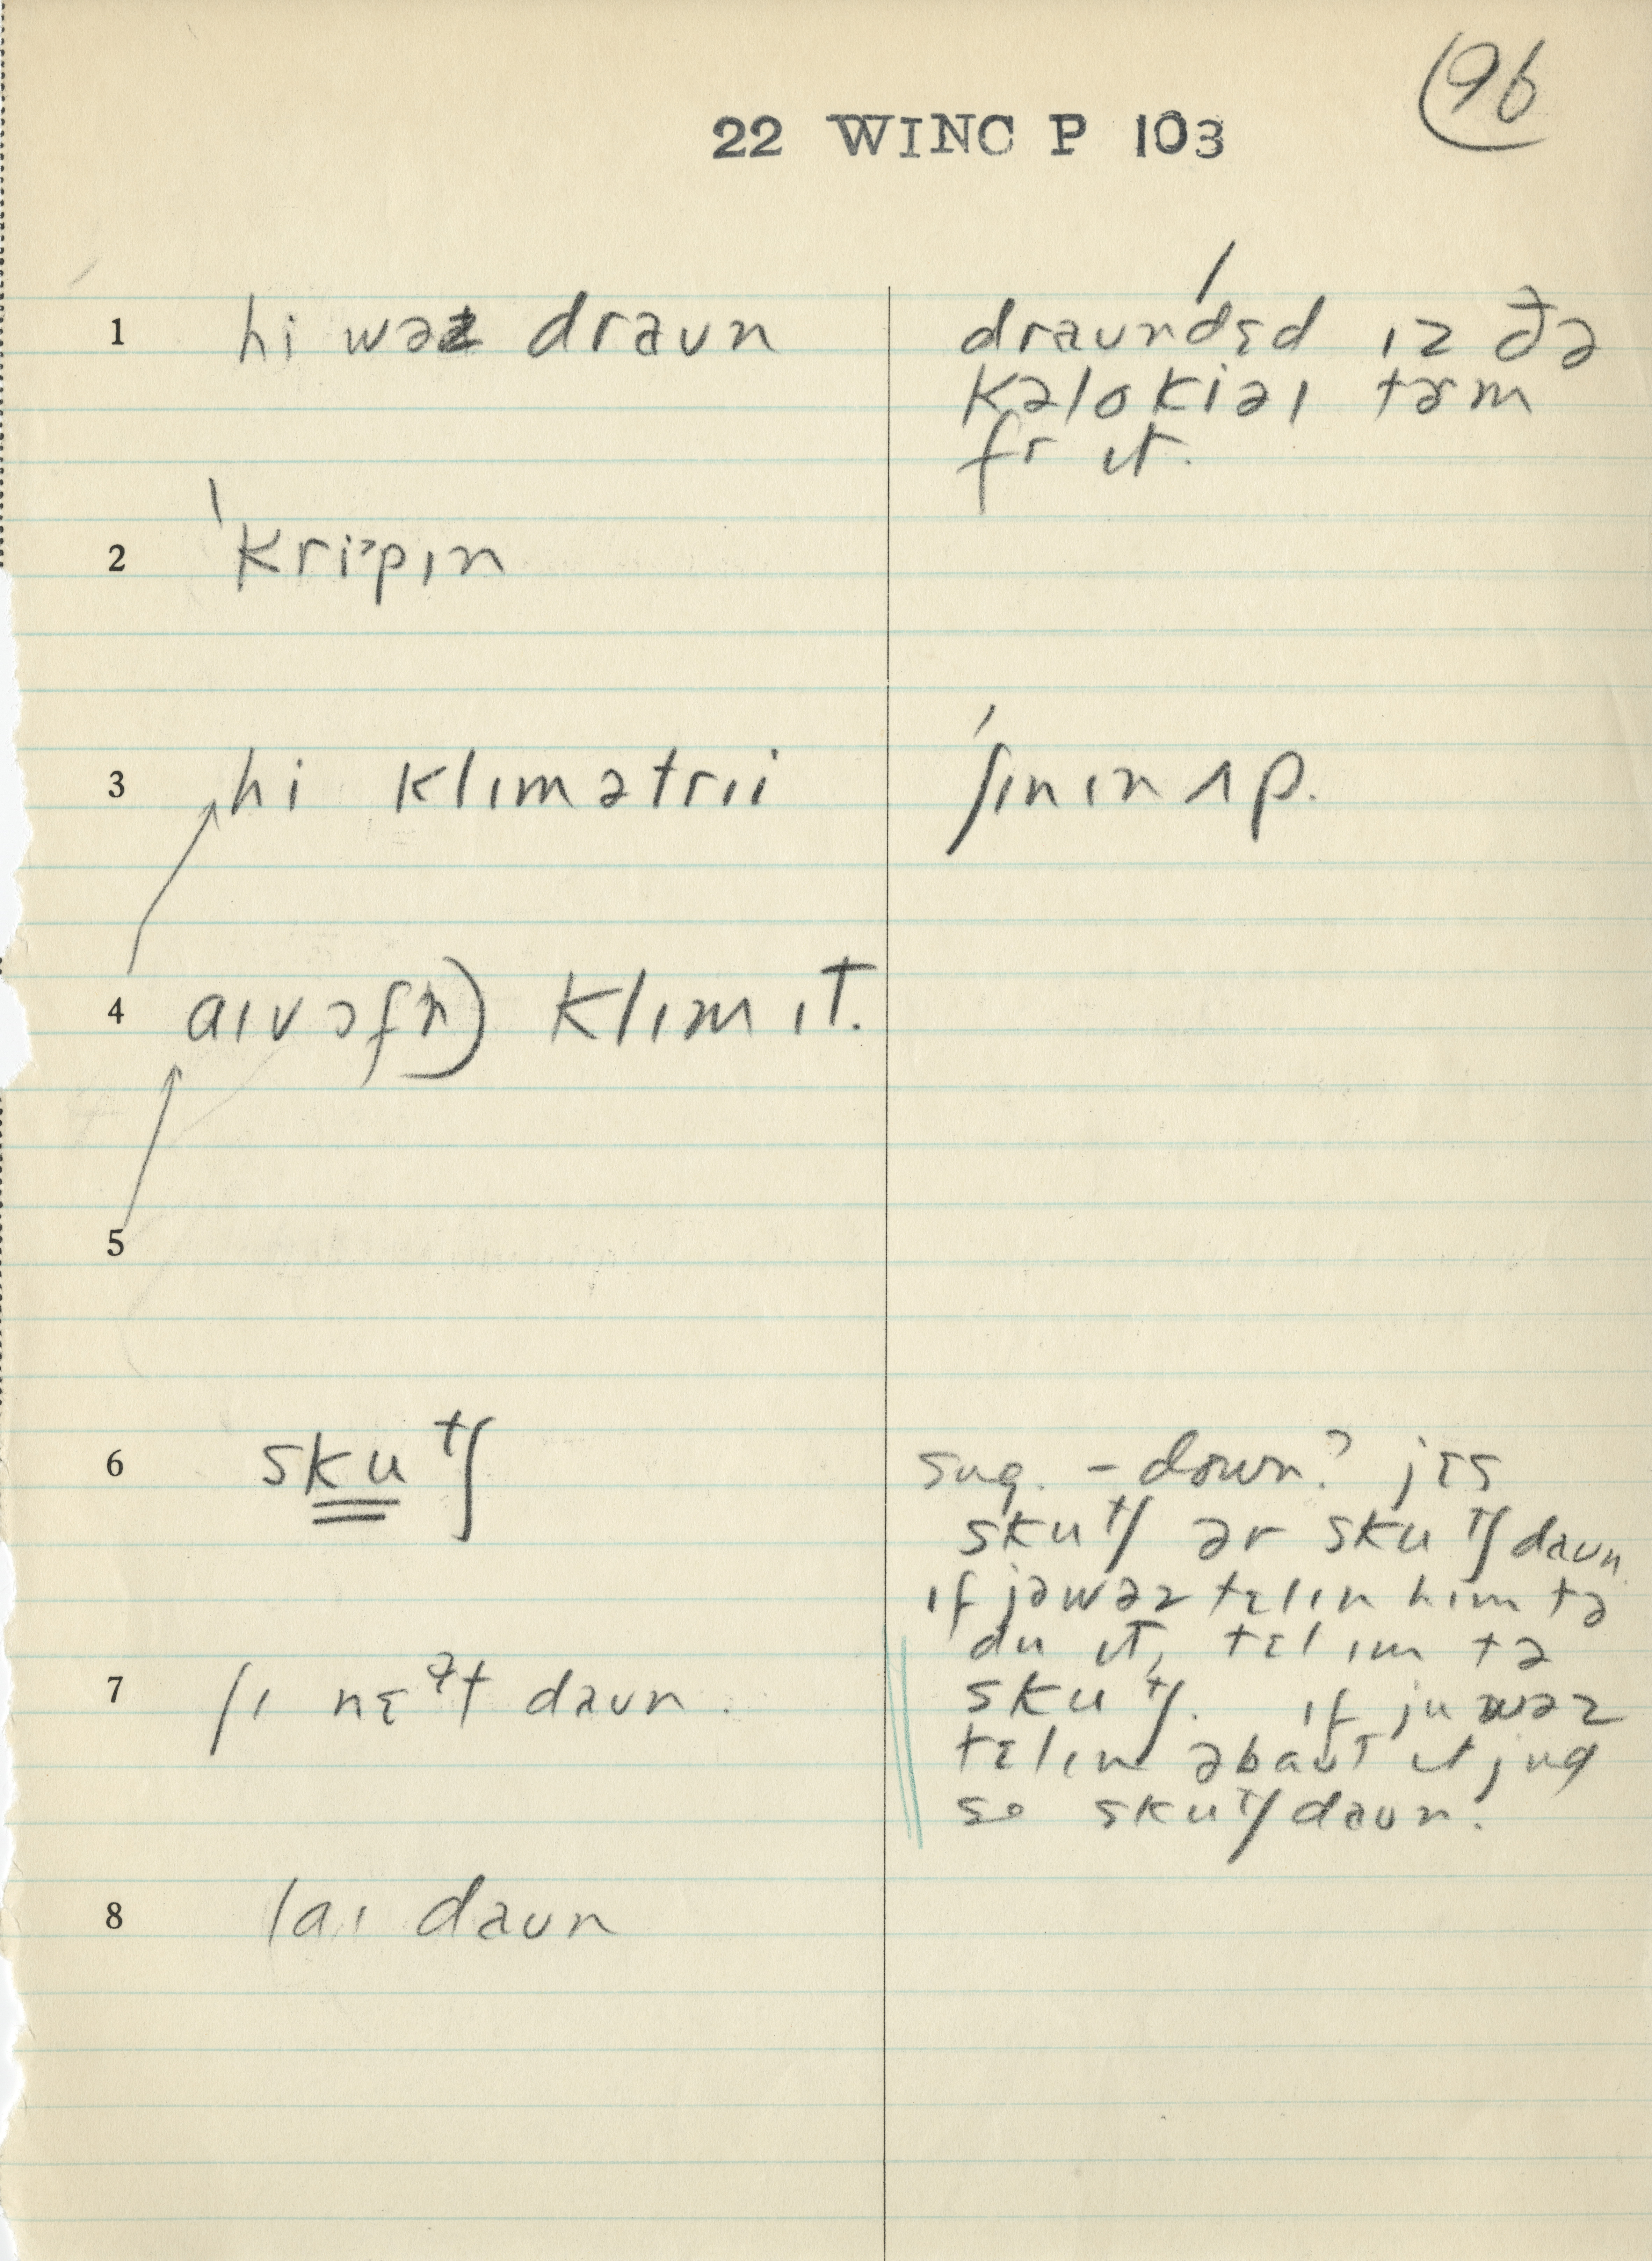 96
22 WINC P 103
1 hi wəz draʊn
draʊndɛd ɪz ðə
kəlokiəl tɚm
fr ɪt.
2 'kri˃pɪn
3 hi klɪmətrɪi
ʃɪnɪn ʌp.
4 aɪv ɔfn) klɪm ɪt.
5
6 skutʃ
sug. – down? jɛs
skutʃ ər skutʃ daʊn
ɪf jə wəz tɛlɪn hɪm tə
du ɪt, tɛl ɪm tə
skutʃ. ɪf ju wəz
tɛlɪn əbaʊt ɪt jud
se skutʃ daʊn.
7 ʃɪ nɛᵊlt daʊn.
8 laɪ daʊn